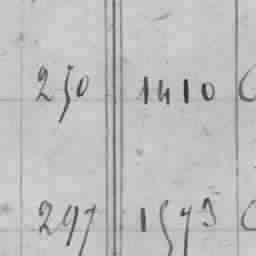 250 1410 C
297 1573 C